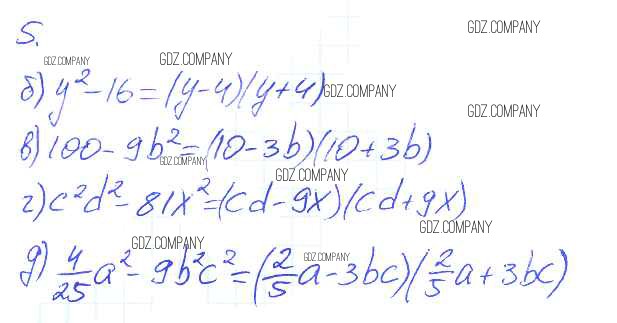 5.
GDZ.COMPANY
GDZ.COMPANY GDZ.COMPANY
б) y² - 16 = (y - 4)(y + 4) GDZ.COMPANY
GDZ.COMPANY
в) 100 - 9b² = (10 - 3b)(10 + 3b)
GDZ.COMPANY
GDZ.COMPANY
г) c²d² - 81x² = (cd - 9x)(cd + 9x)
GDZ.COMPANY
GDZ.COMPANY GDZ.COMPANY
д) 4/25 a² - 9b²c² = (2/5 a - 3bc)(2/5 a + 3bc)